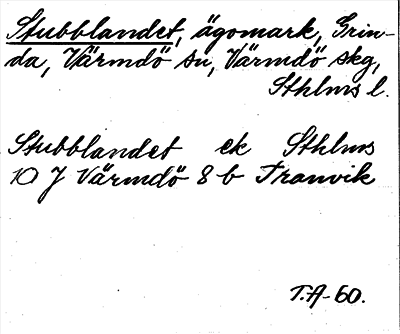 Stubblandet, ägomark, Grin-
da, Värmdö sn, Värmdö skg,
Sthlms l.
Stubblandet ek Sthlms
10 J Värmdö 8 b Tranvik
T.A-60.